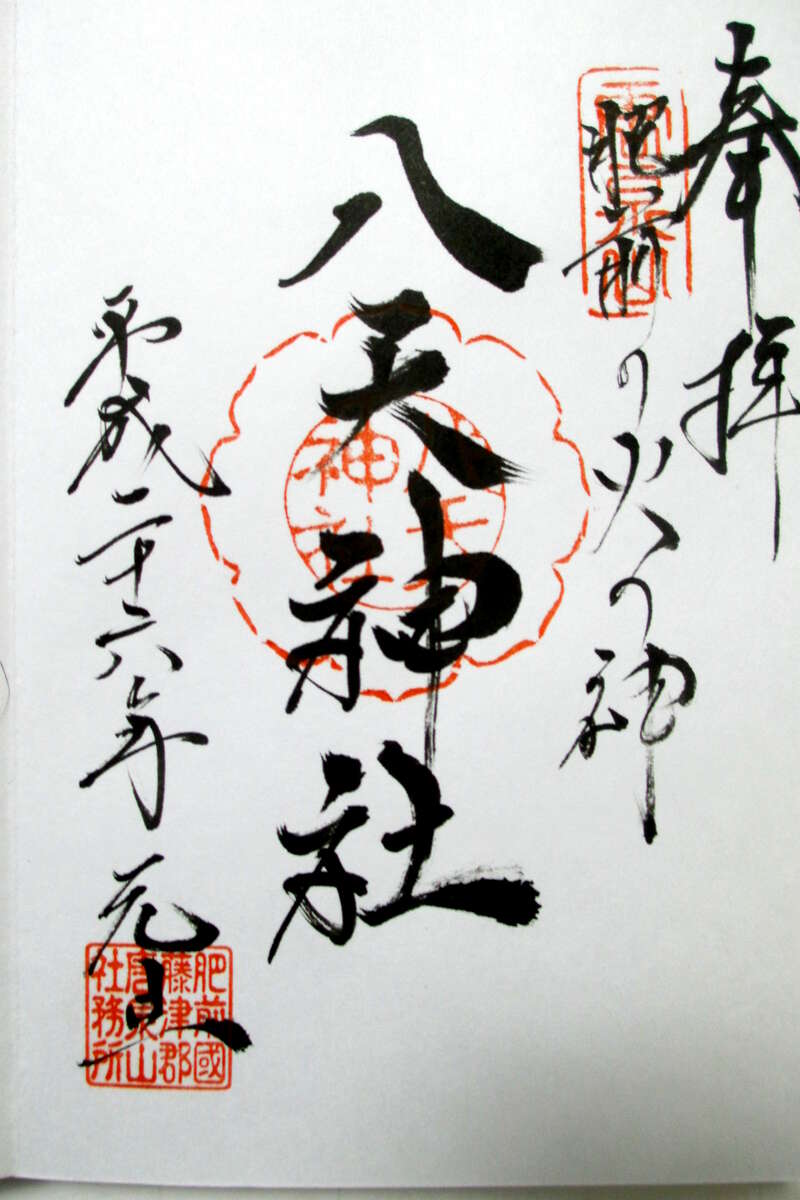 奉拝
肥前の火の神
八天神社
平成二十六年元旦
八天
神社
肥前國
藤津郡
唐泉山
社務所